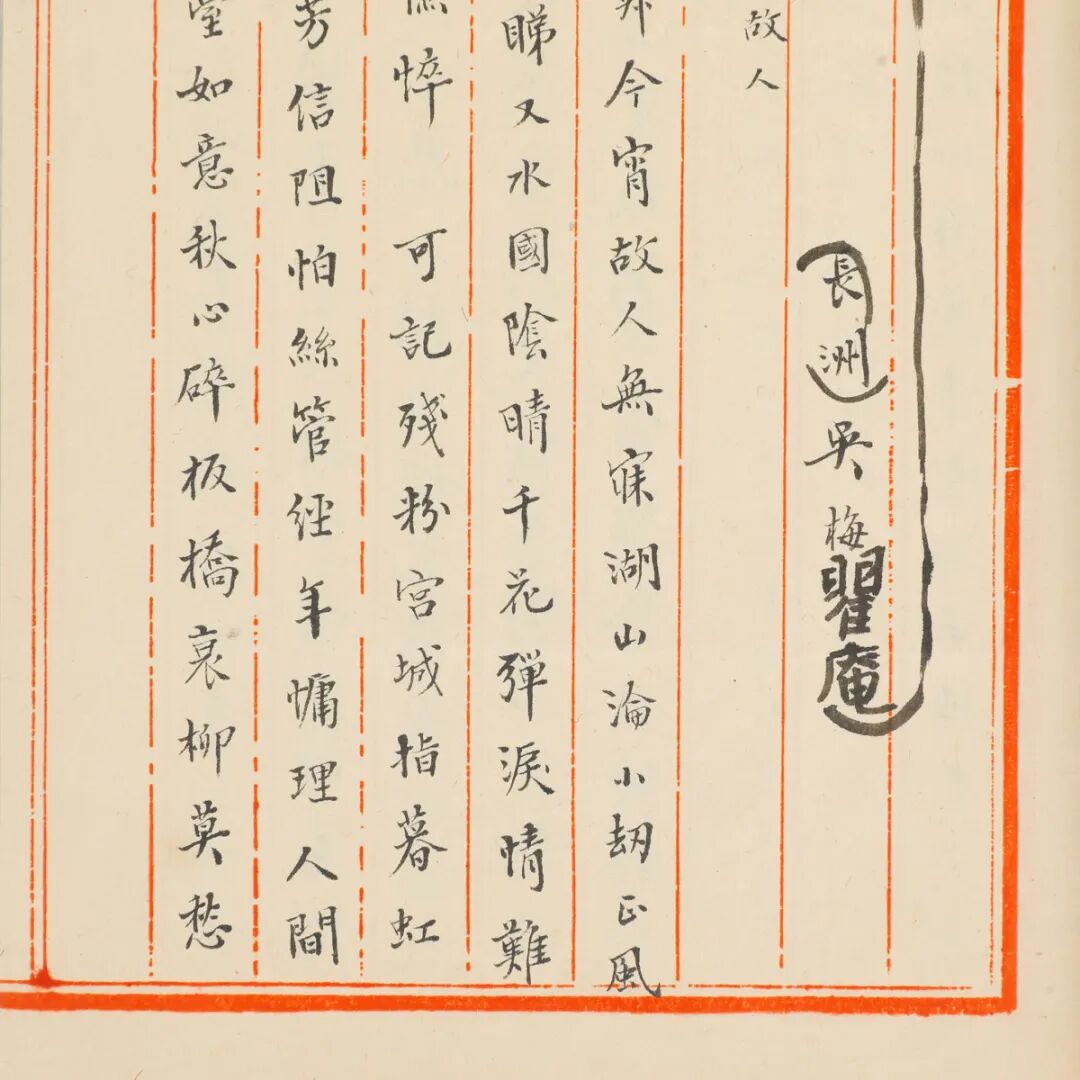 長洲吳梅瞿庵
故人
今宵故人無寐湖山淪小劫正風
睇又水國陰晴千花彈淚情難
悴 可記殘粉宮城指暮虹
芳信阻怕絲管經年慵理人間
堂如意秋心碎板橋哀柳莫愁